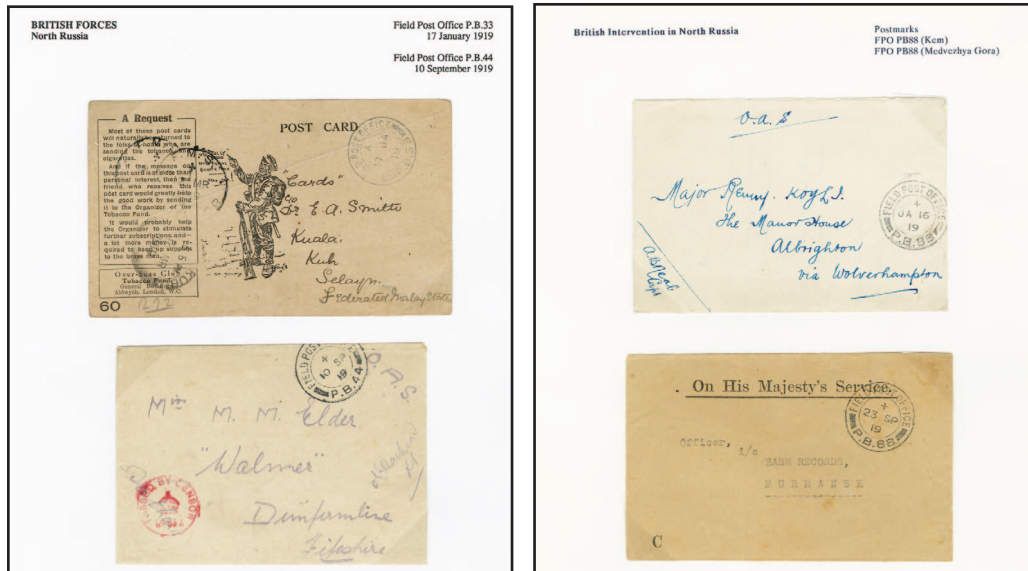 BRITISH FORCES
North Russia
Field Post Office P.B.33
17 January 1919
Field Post Office P.B.44
10 September 1919
A Request
Most of these post cards
will naturally be returned to
the folks at home who are
sending the tobacco and
cigarettes.
And if the message on
this post card is of more than
personal interest, then the
friend who receives this
post card would greatly help
the good work by sending
it to the Organizer of the
Tobacco Fund.
It would probably help
the Organizer to stimulate
further subscriptions and
a lot more money is re-
quired to keep up supplies
to the brave men.
Over-Seas Club
Tobacco Fund
General Buildings
Aldwych, London, W.C.
60
1272
POST CARD
"Cards"
c/o
E. A. Smith
Kuala
Kub
Selayn.
Federated Malay States
FIELD POST OFFICE
10 SP
19
P.B.44
O.A.S.
Mrs M. M. Elder
"Walmer"
Dunfermline
Fifeshire
PASSED BY CENSOR
British Intervention in North Russia
Postmarks
FPO PB88 (Kem)
FPO PB88 (Medvezhya Gora)
O.A.S
Major Renny. KOYLI.
The Manor House
Albrighton
via Wolverhampton
FIELD POST OFFICE
JA 16
19
P.B.88
On His Majesty's Service.
FIELD POST OFFICE
23 SP
19
P.B.88
Officer,
i/c
BASE RECORDS,
MURMANSK
C